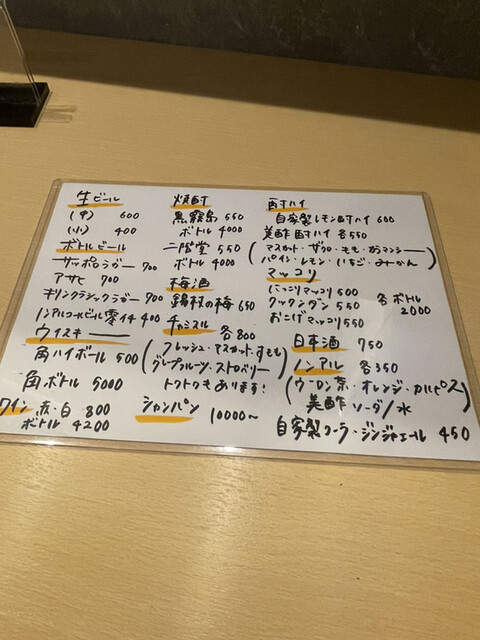 生ビール
(中) 600
(小) 400
ボトルビール
サッポロラガー 700
アサヒ 700
キリンクラシックラガー 700
ノンアルコールビール零イチ 400
ウイスキー
角ハイボール 500
角ボトル 5000
ワイン 赤・白 800
ボトル 4200
焼酎
黒霧島 550
ボトル 4000
二階堂 550
ボトル 4000
梅酒
鶴梅の梅 650
チャミスル 各800
(フレッシュ・マスカット・すもも
グレープフルーツ・ストロベリー)
トクトクもあります!
シャンパン 10000~
酎ハイ
自家製レモン酎ハイ 600
美酢酎ハイ 各550
(マスカット・ザクロ・もも・カラマンシー
パイン・レモン・いちご・みかん)
マッコリ
にっこりマッコリ 500
クックスンダン 550
おこげマッコリ 550
各ボトル
2000
日本酒 750
ノンアル 各350
(ウーロン茶・オレンジ・カルピス
美酢 ソーダ/水)
自家製コーラ・ジンジャエール 450